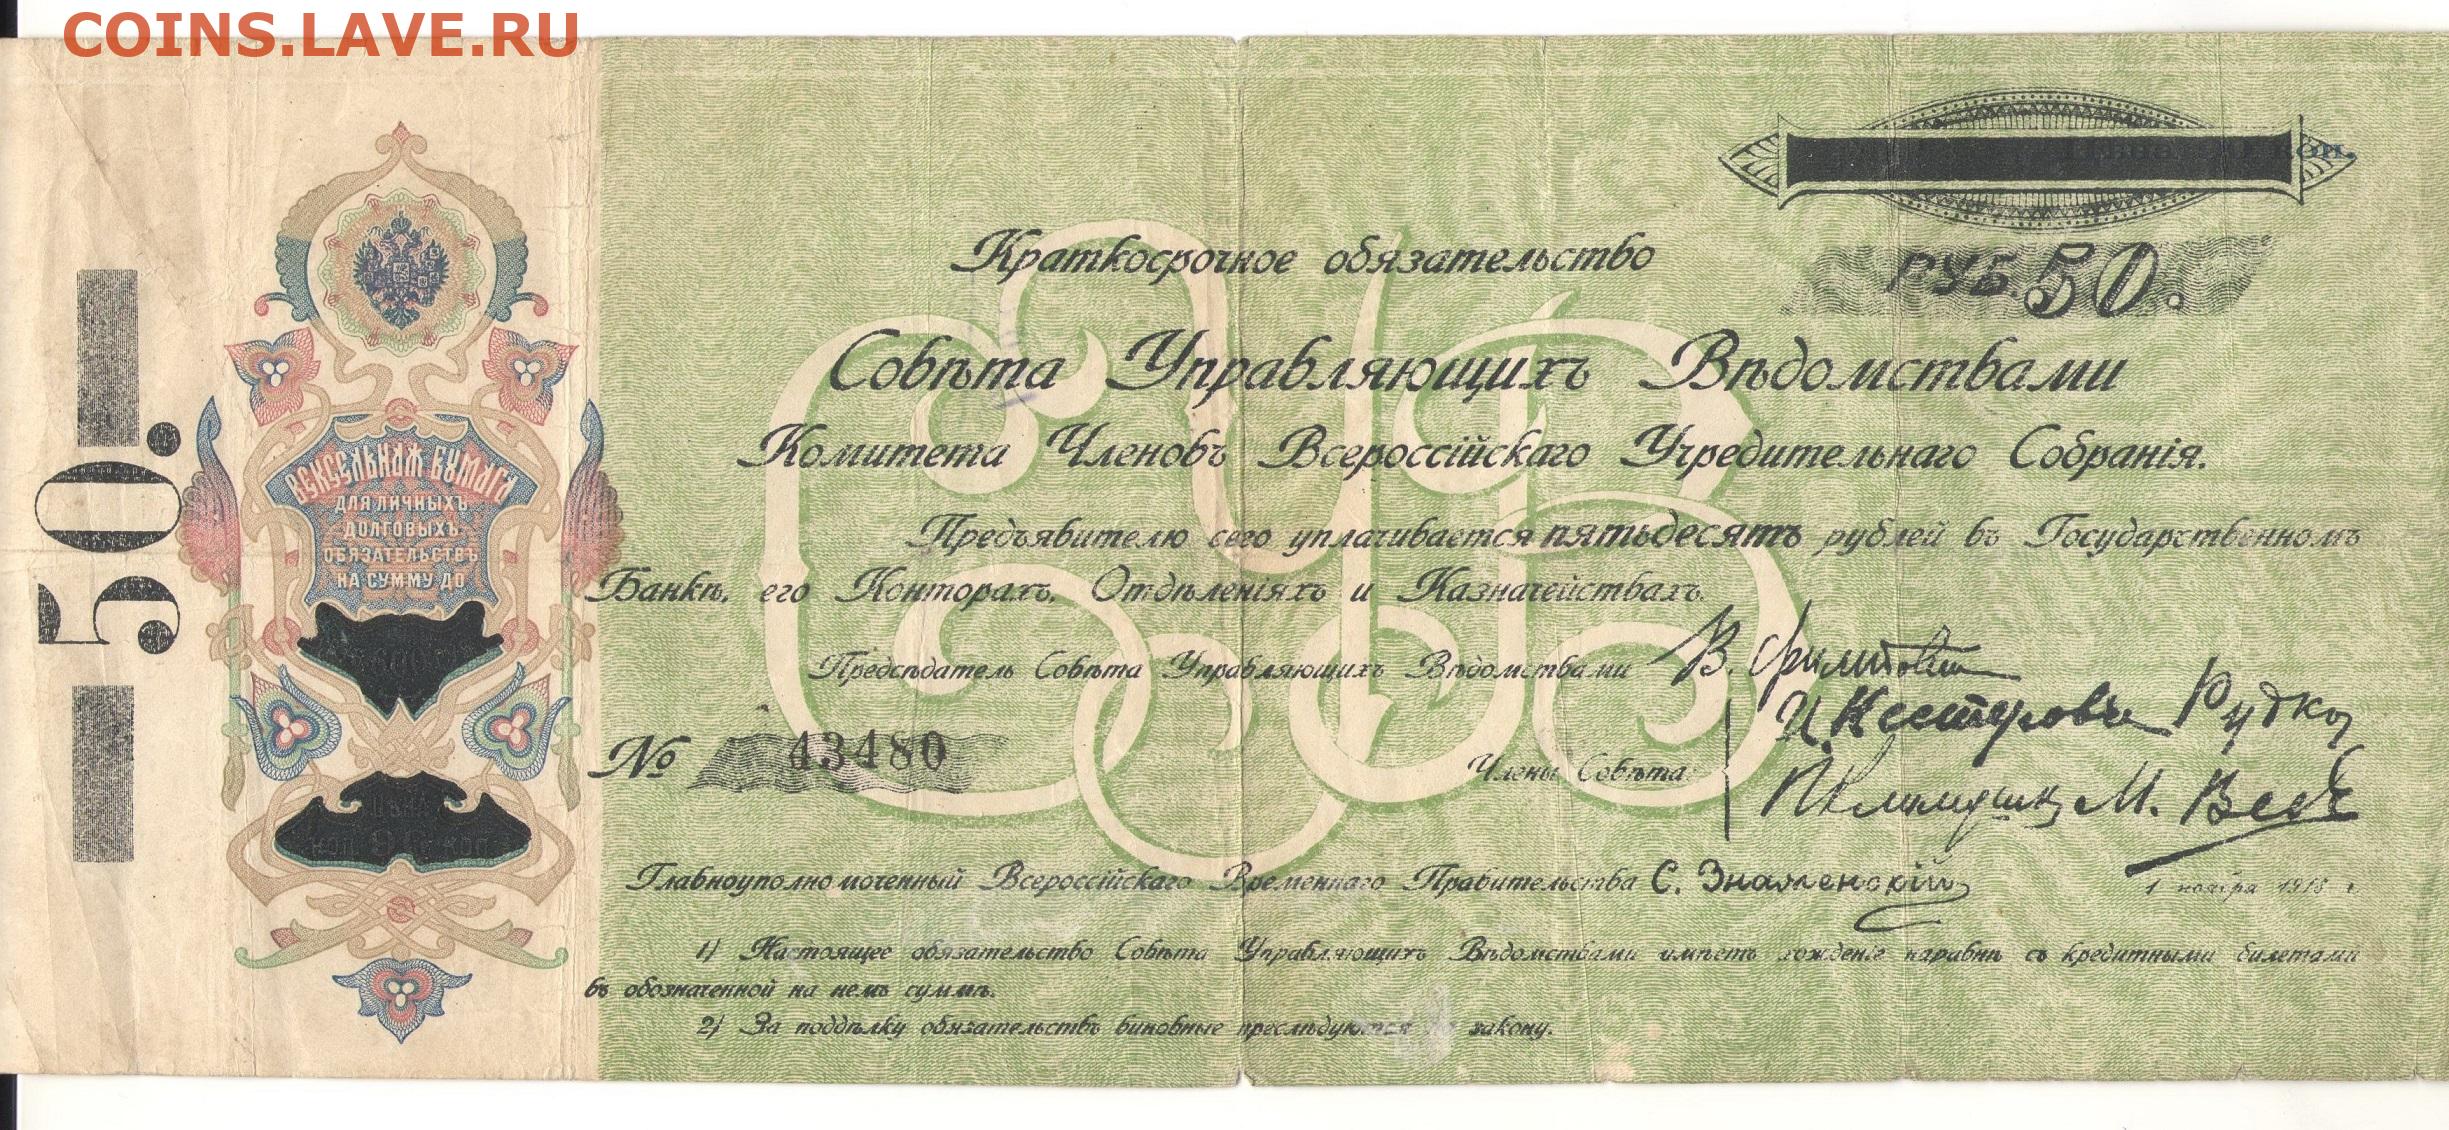 COINS.LAVE.RU
коп.
Краткосрочное обязательство
РУБ. 50.
Совѣта Управляющихъ Вѣдомствами
Комитета Членовъ Всероссійскаго Учредительнаго Собранія.
Предъявителю сего уплачивается пятьдесятъ рублей въ Государственномъ
Банкѣ, его Конторахъ, Отдѣленіяхъ и Казначействахъ.
Предсѣдатель Совѣта Управляющихъ Вѣдомствами
И. Нестеровъ
№ 43480
Члены Совѣта:
Главноуполномоченный Всероссійскаго Временнаго Правительства С. Знаменскій
1 ноября 1918 г.
1) Настоящее обязательство Совѣта Управляющихъ Вѣдомствами имѣетъ хожденіе наравнѣ съ кредитными билетами
въ обозначенной на немъ суммѣ.
2) За поддѣлку обязательствъ виновные преслѣдуются по закону.
50.
ВЕКСЕЛЬНАЯ БУМАГА
ДЛЯ ЛИЧНЫХЪ
ДОЛГОВЫХЪ
ОБЯЗАТЕЛЬСТВЪ
НА СУММУ ДО
ЦѢНА
КОП. 90 КОП.